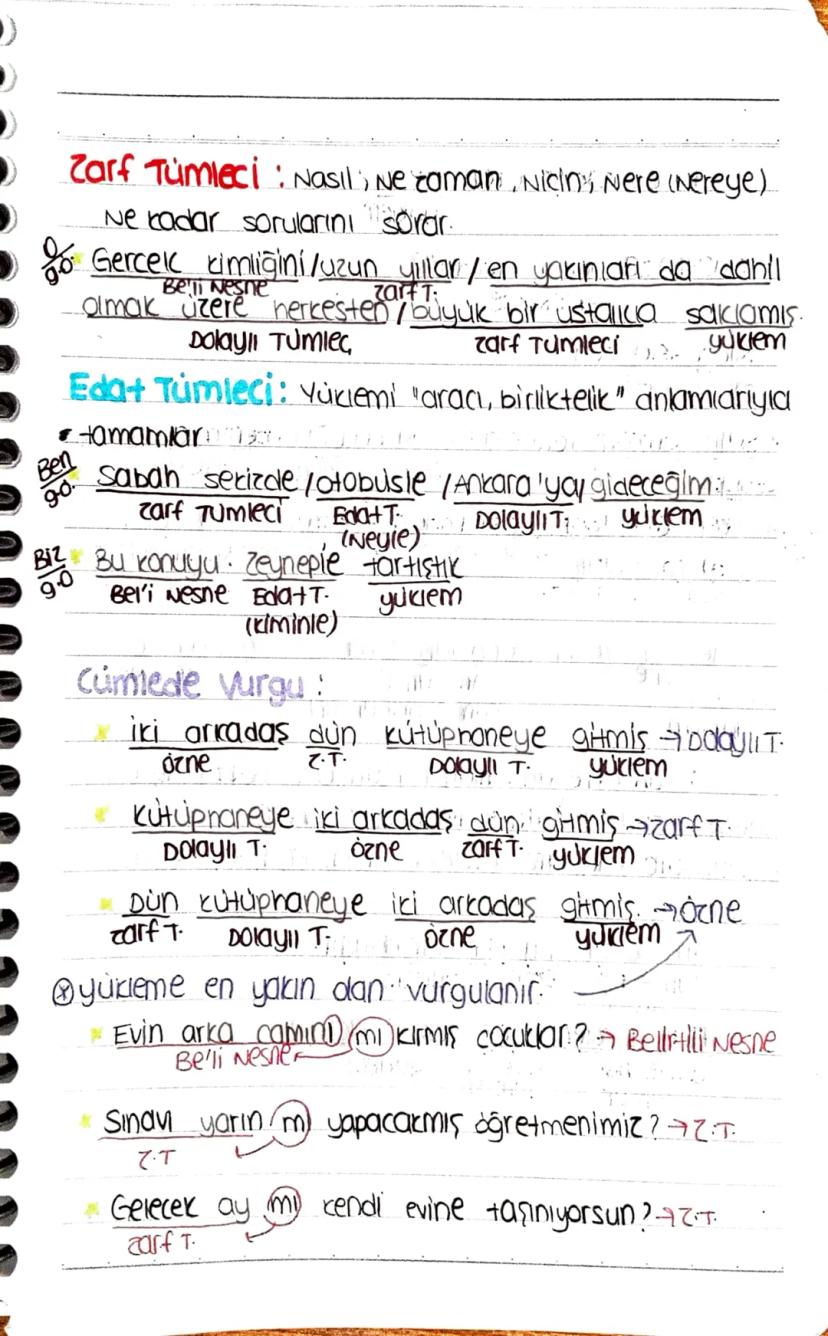 Zarf Tümleci : Nasıl, Ne zaman, Niçin, Nere (Nereye)
Ne kadar sorularını sorar.
O/gö Gerçek kimliğini / uzun yıllar / en yakınları da dahil
Be'li Nesne Zarf T.
olmak üzere herkesten / büyük bir ustalıkla saklamış.
Dolaylı Tümleç Zarf Tümleci yüklem
Edat Tümleci : Yüklemi "aracı, birliktelik" anlamlarıyla
tamamlar
Ben/gö. Sabah sekizde / otobüsle / Ankara'ya / gideceğim.
Zarf Tümleci Edat T. Dolaylı T. yüklem
(Neyle)
Biz/gö Bu konuyu Zeyneple tartıştık
Bel'i Nesne Edat T. yüklem
(kiminle)
Cümlede Vurgu :
İki arkadaş dün kütüphaneye gitmiş → Dolaylı T.
özne Z.T. Dolaylı T. yüklem
Kütüphaneye iki arkadaş dün gitmiş → Zarf T.
Dolaylı T. özne Zarf T. yüklem
Dün kütüphaneye iki arkadaş gitmiş. → özne
Zarf T. Dolaylı T. özne yüklem
yükleme en yakın olan vurgulanır.
Evin arka camını mı kırmış çocuklar? → Belirtili Nesne
Be'li Nesne
Sınavı yarın mı yapacakmış öğretmenimiz? → Z.T.
Z.T
Gelecek ay mı kendi evine taşınıyorsun? → Z.T.
Zarf T.